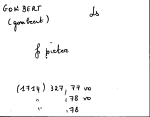 GOMBERT ds
(gombert)
f pictor
(1714) 327, 77 vo
" , 78 vo
" , 78